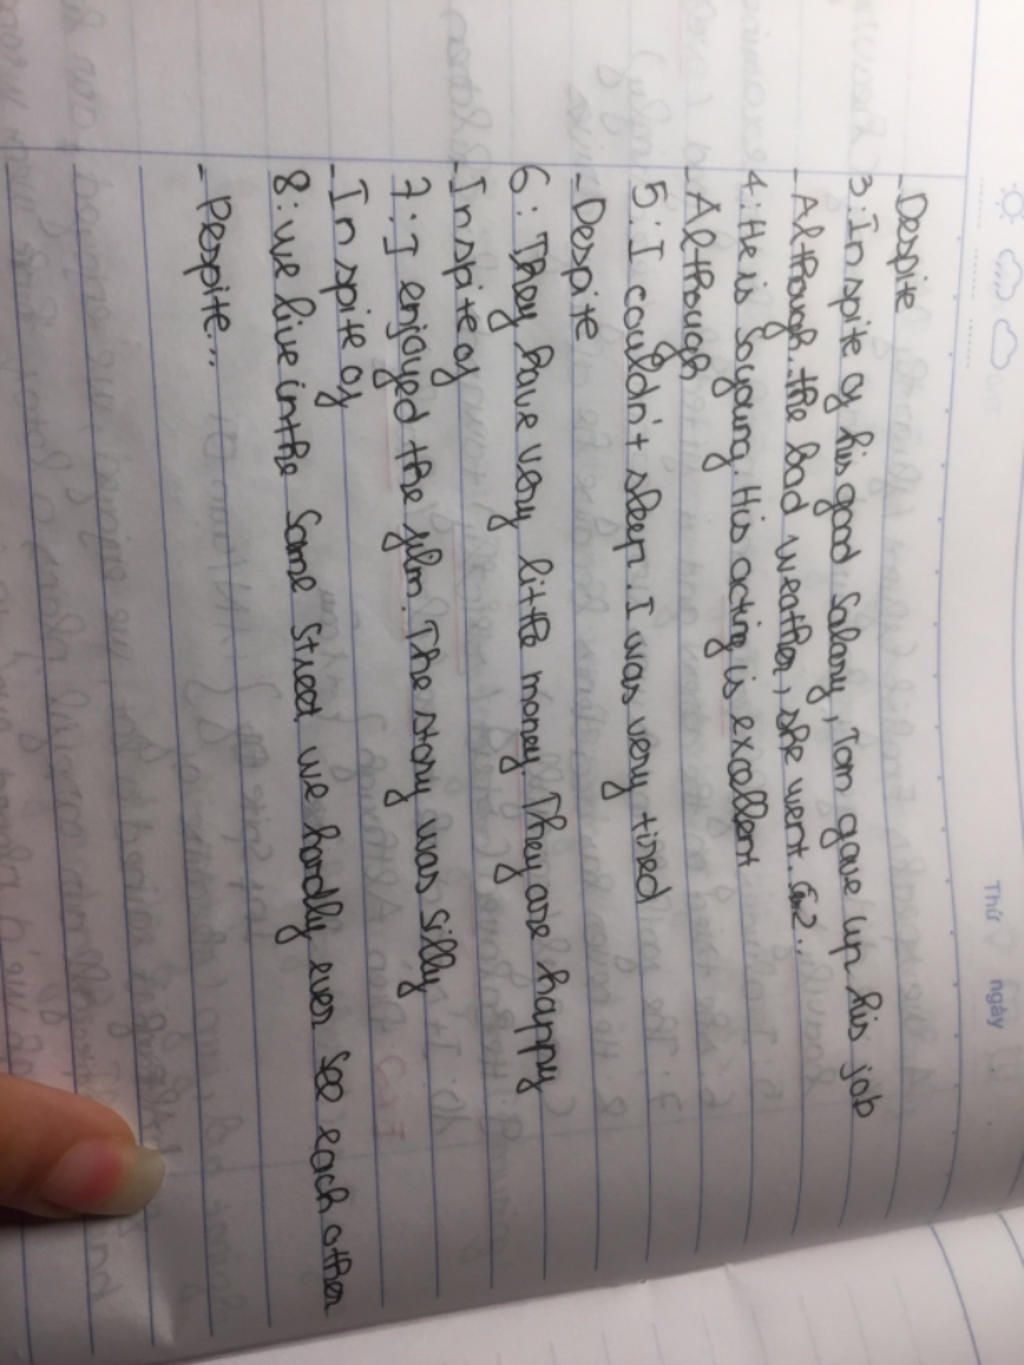 Thứ ngày
- Despite
3: In spite of his good salary, Tom gave up his job
- Although.. the bad weather, she went.
4: He is so young. His acting is excellent
- Although
5: I couldn't sleep. I was very tired
- Despite
6: They have very little money. They are happy
- In spite of
7: I enjoyed the film. The story was silly
- In spite of
8: we live in the same street we hardly ever see each other
- Despite...